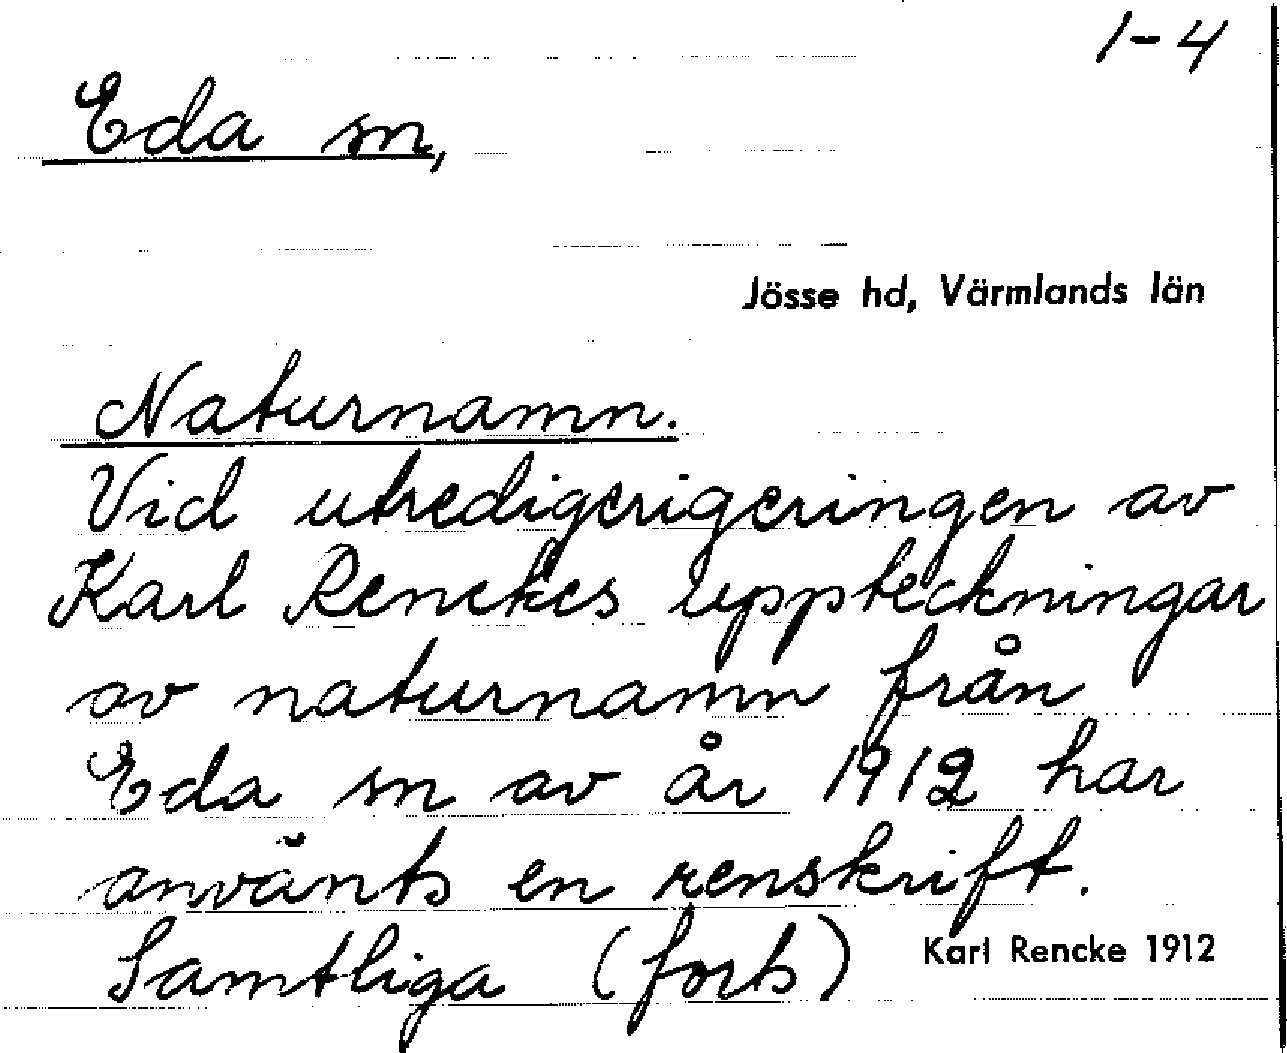 1-4
Eda sn,
Jösse hd, Värmlands län
Naturnamn.
Vid utredigerigeringen av
Karl Renckes uppteckningar
av naturnamn från
Eda sn av år 1912 har
använts en renskrift.
Samtliga (forts)
Karl Rencke 1912